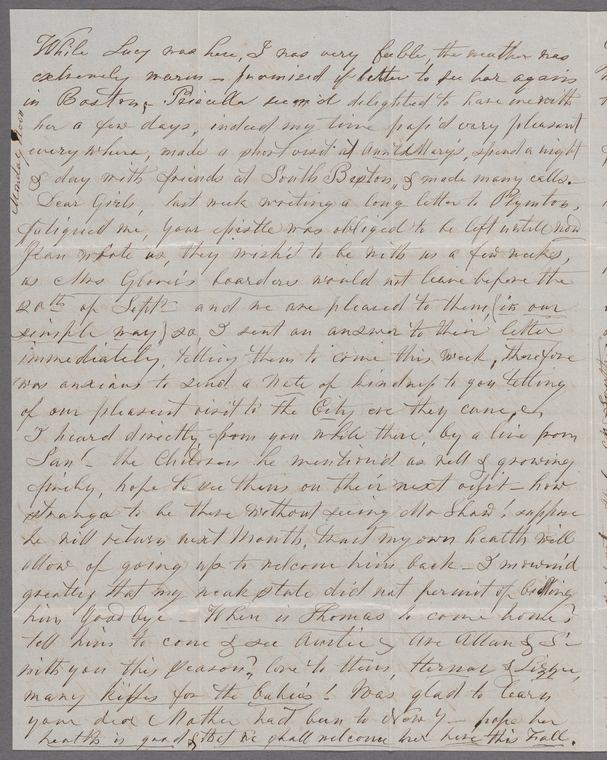 While Lucy was here, I was very feeble, the weather was
extremely warm – promised if better to see her again
in Boston, Priscilla seem'd delighted to have me with
her a few days, indeed my time pass'd very pleasant
every where, made a short visit at Aunt Mary's, spend a night
& day with friends at South Boston, & made many calls.–
Dear Girls, last week writing a long letter to Plymton,
fatigued me, your epistle was obliged to be left untill now
Jean whote us, they wish'd to be with us a few weeks,
as Mrs Glover's boarders would not leave before the
20th of Septr and we are pleased to them, (in our
simple way) so, I sent an answer to their letter
immediately, telling them to come this week, therefore
was anxious to send a Note of kindness to you telling
of our pleasant visit to the City ere they came,
I heard directly from you while there, by a line from
Saml – the Children he mention'd as well & growing
finely, hope to see them on their next visit – how
strange to be there without seeing Mr Shaw, suppose
he will return next Month, trust my own health will
allow of going up to welcome him back – I mourn'd
greatly that my weak state did not permit of bidding
him Good bye – When is Thomas to come home?
tell him to come & see Auntie & Are Allan &
with you this Season? love to them, & Lizzie,
many kisses for the babies! Was glad to learn
your dear Mother had been to – hope her
health is good & that we shall welcome her here this Fall.